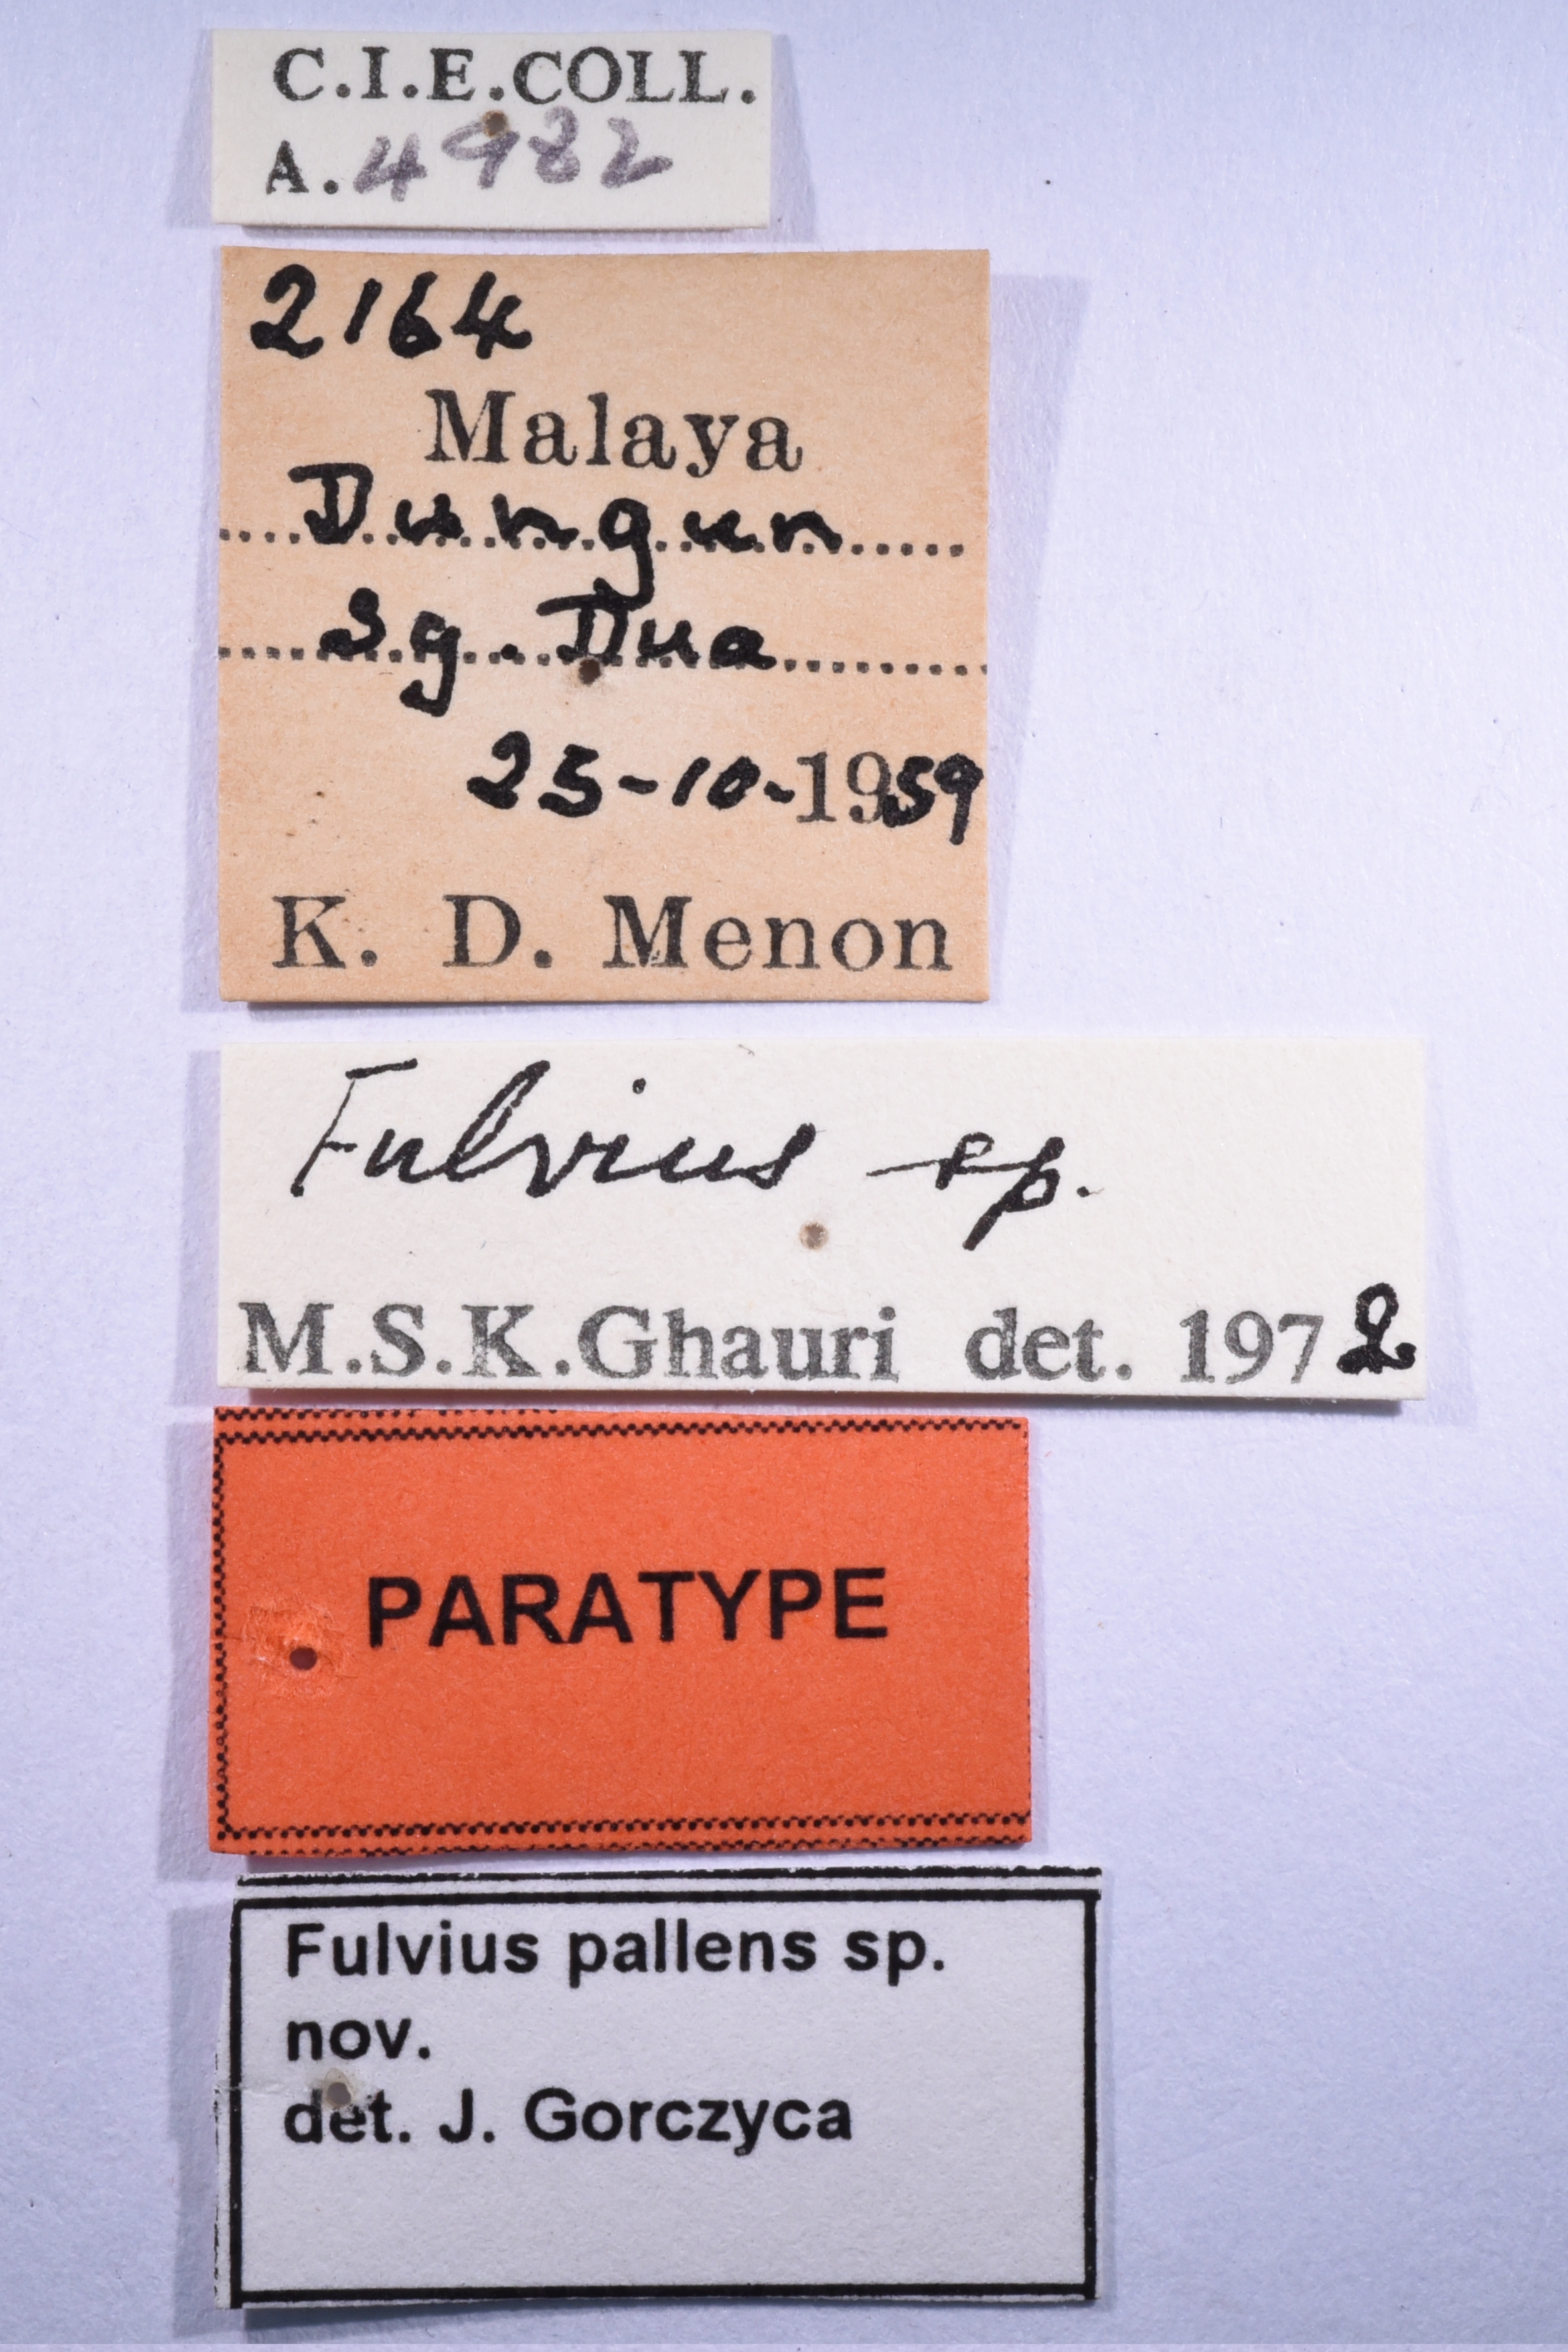 C.I.E.COLL.
A. 4982
2164
Malaya
Dungun
Sg. Dua
25-10-1959
K. D. Menon
Fulvius sp.
M.S.K.Ghauri det. 1972
PARATYPE
Fulvius pallens sp.
nov.
det. J. Gorczyca